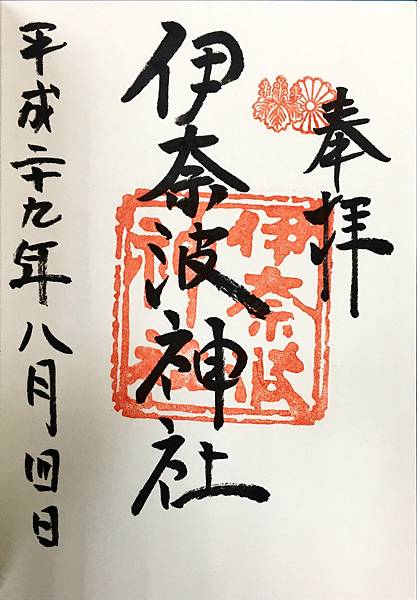 奉拝
伊奈波神社
伊奈波
神社
平成二十九年八月四日